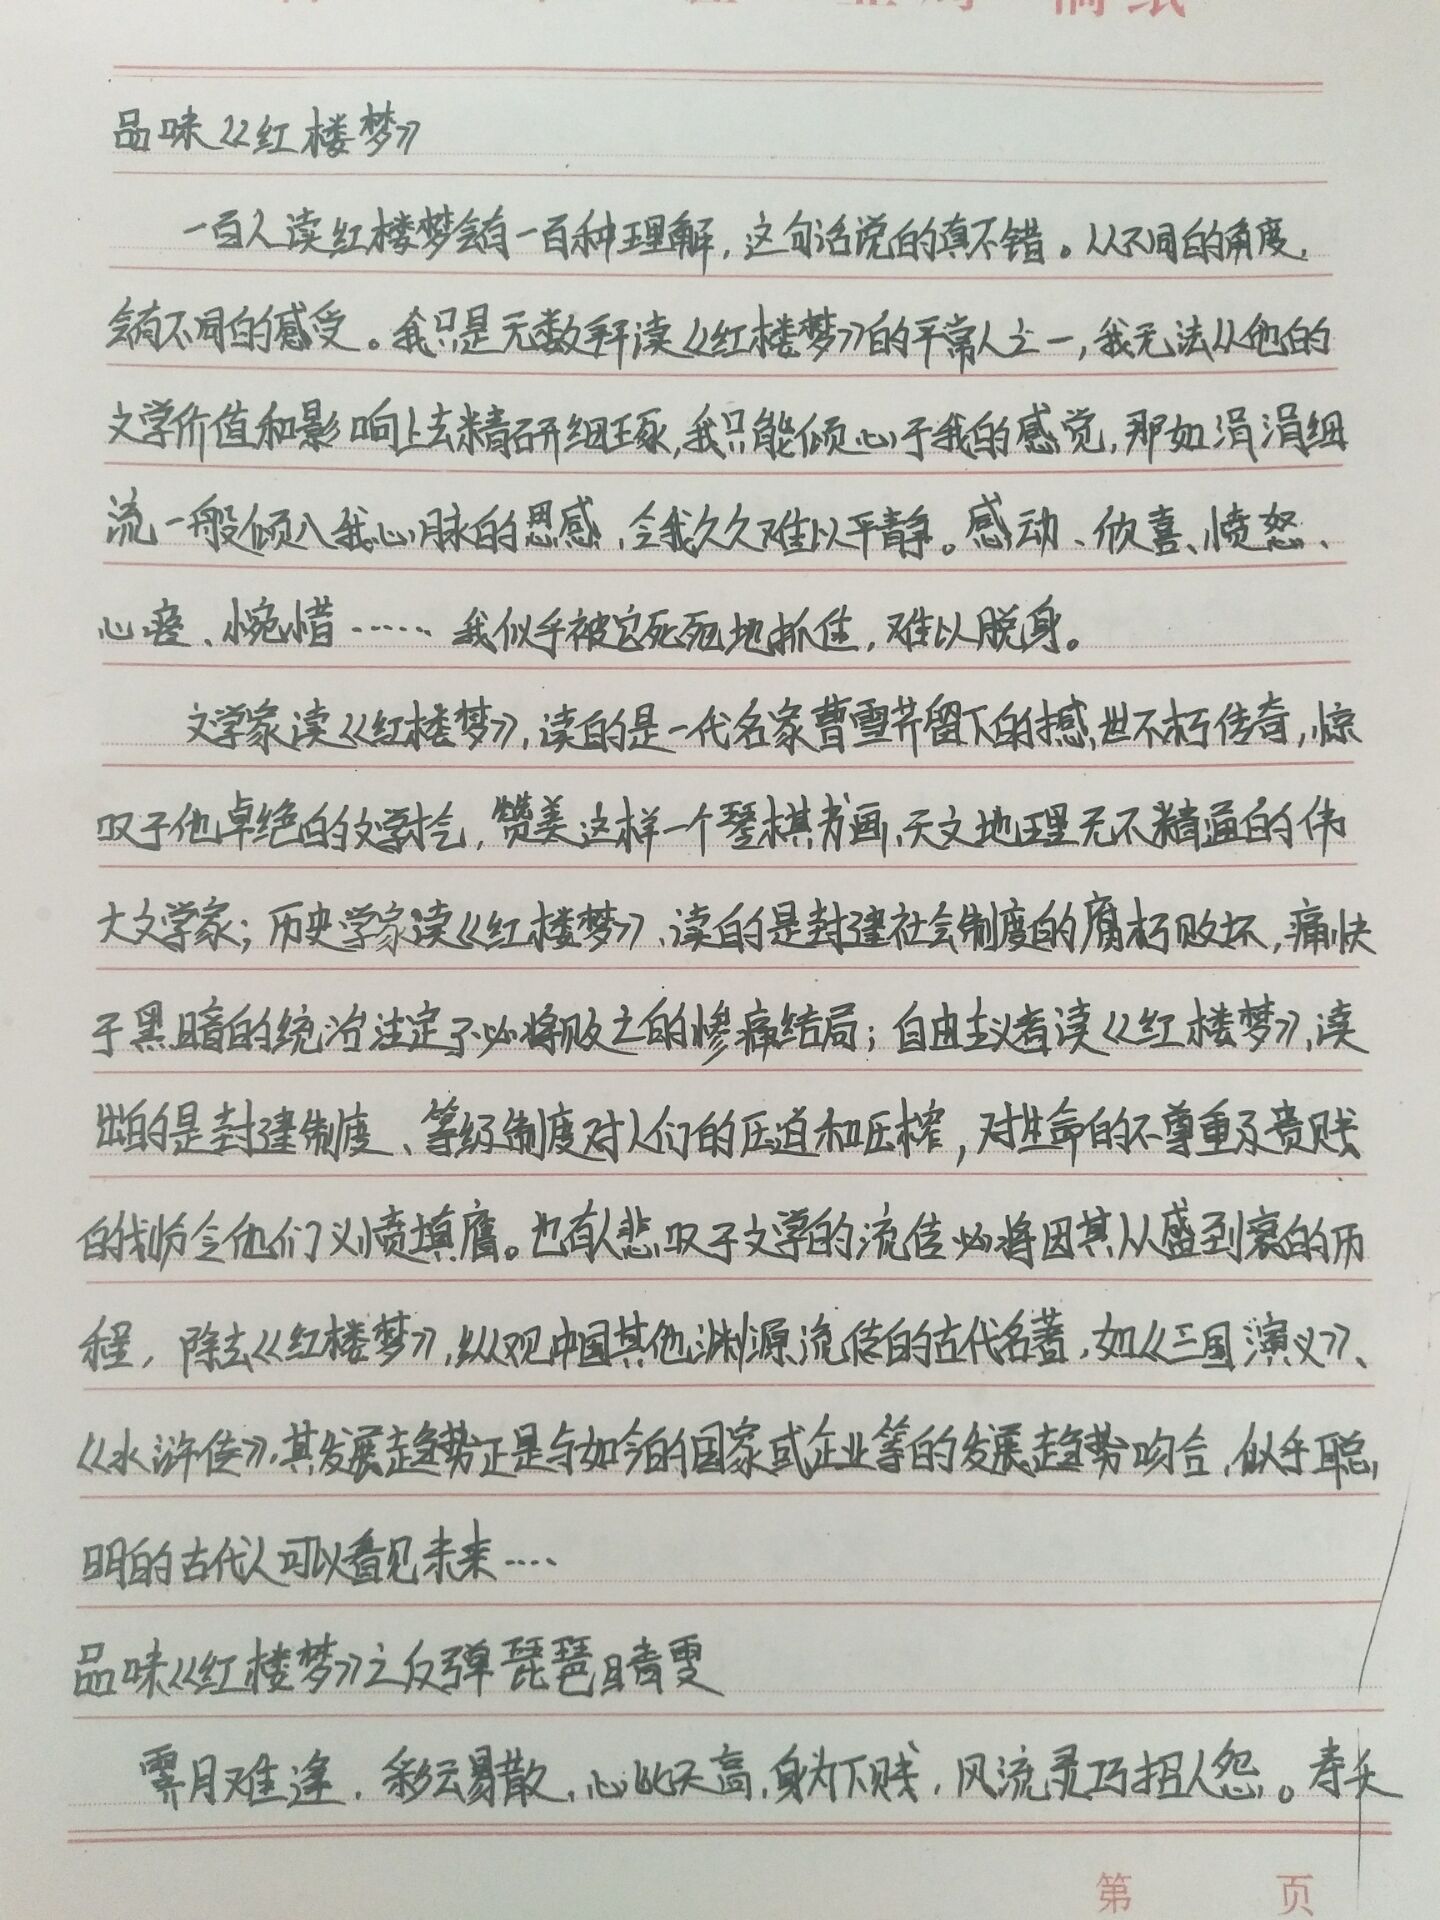 稿纸
品味《红楼梦》
一百人读红楼梦会有一百种理解，这句话说的真不错。从不同的角度，
会有不同的感受。我只是无数拜读《红楼梦》的平常人之一，我无法从他的
文学价值和影响上去精研细琢，我只能倾心于我的感觉，那如涓涓细
流一般倾入我心脉的思感，令我久久难以平静。感动、欣喜、愤怒、
心疼、惋惜…… 我似乎被它死死地抓住，难以脱身。
文学家读《红楼梦》，读的是一代名家曹雪芹留下的撼世不朽传奇，惊
叹于他卓绝的文学才气，赞美这样一个琴棋书画、天文地理无不精通的伟
大文学家；历史学家读《红楼梦》，读的是封建社会制度的腐朽败坏，痛快
于黑暗的统治注定了必将败亡的惨痛结局；自由主义者读《红楼梦》，读
出的是封建制度、等级制度对人们的压迫和压榨，对生命的不尊重及贵贱
的划份令他们义愤填膺。也有人悲叹于文学的流传必将因其从盛到衰的历
程，除去《红楼梦》，纵观中国其他渊源流传的古代名著，如《三国演义》、
《水浒传》，其发展趋势正是与如今的国家或企业等的发展趋势吻合，似乎聪
明的古代人可以看见未来……
品味《红楼梦》之反弹琵琶晴雯
霁月难逢，彩云易散，心比天高，身为下贱，风流灵巧招人怨。寿夭
第 页